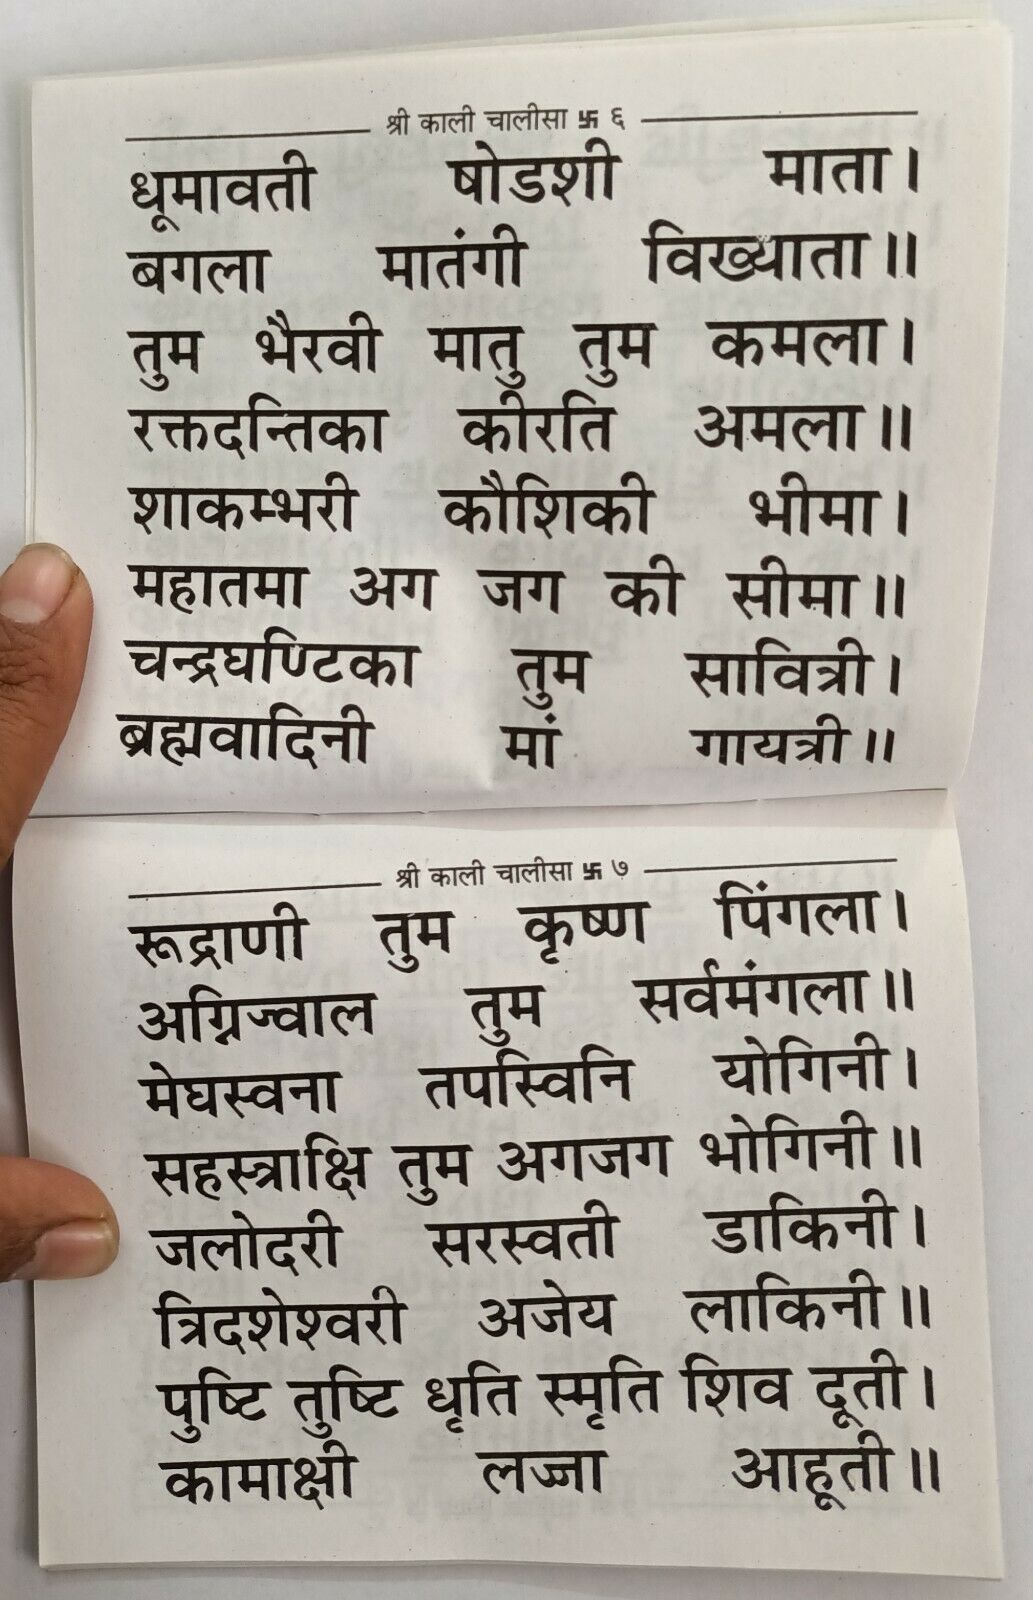 श्री काली चालीसा 卐 ६
धूमावती षोडशी माता।
बगला मातंगी विख्याता॥
तुम भैरवी मातु तुम कमला।
रक्तदन्तिका कीरति अमला॥
शाकम्भरी कौशिकी भीमा।
महातमा अग जग की सीमा॥
चन्द्रघण्टिका तुम सावित्री।
ब्रह्मवादिनी मां गायत्री॥
श्री काली चालीसा 卐 ७
रूद्राणी तुम कृष्ण पिंगला।
अग्निज्वाल तुम सर्वमंगला॥
मेघस्वना तपस्विनि योगिनी।
सहस्त्राक्षि तुम अगजग भोगिनी॥
जलोदरी सरस्वती डाकिनी।
त्रिदशेश्वरी अजेय लाकिनी॥
पुष्टि तुष्टि धृति स्मृति शिव दूती।
कामाक्षी लज्जा आहूती॥